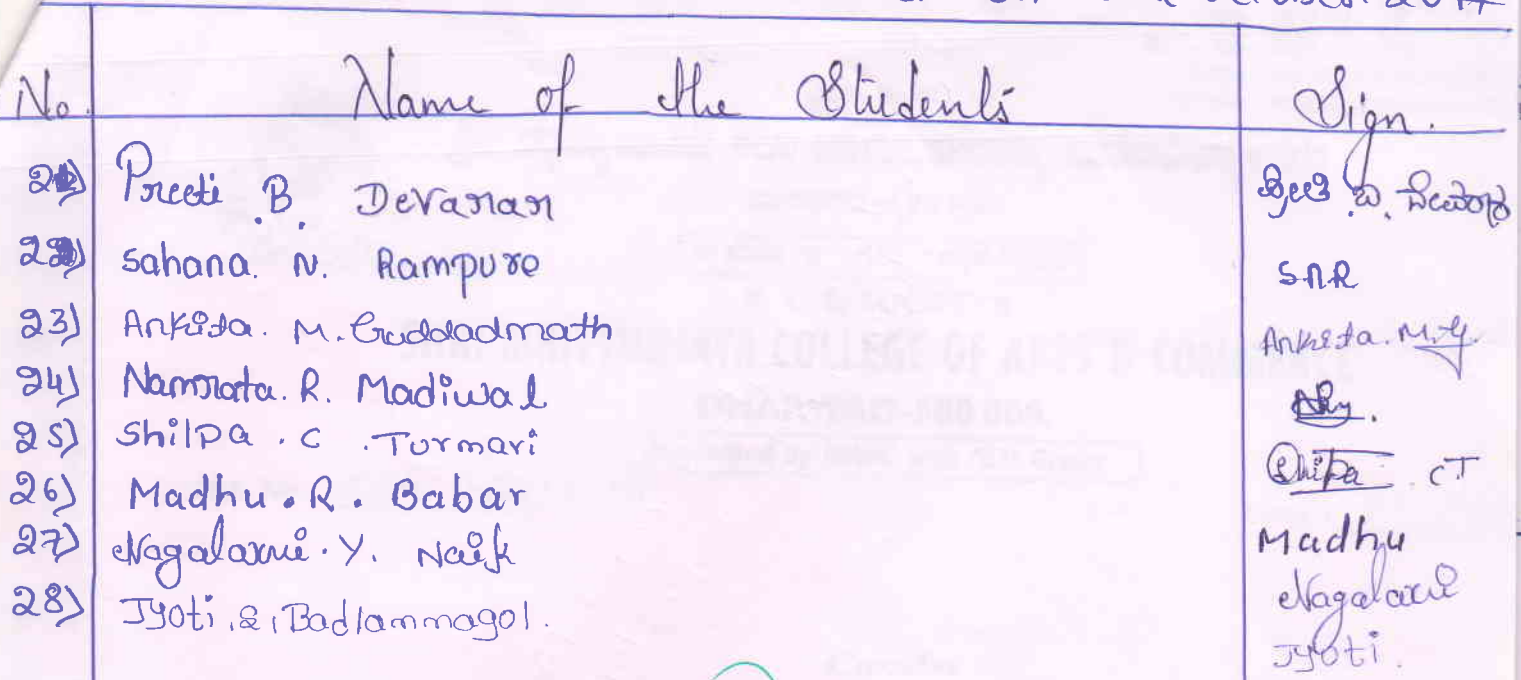 2017
No. Name of the Students Sign.
21) Preeti .B. Devaran ಪ್ರೀತಿ .ಬ. ದೇವರಾನ
22) Sahana. N. Rampure S.N.R
23) Ankita. M. Guddadmath Ankita. M.G.
24) Namrata. R. Madiwal
25) Shilpa . C . Turmari Shilpa CT
26) Madhu . R . Babar Madhu
27) Nagalaxmi . Y. Naik Nagalaxmi
28) Jyoti . Badlammagol. Jyoti.